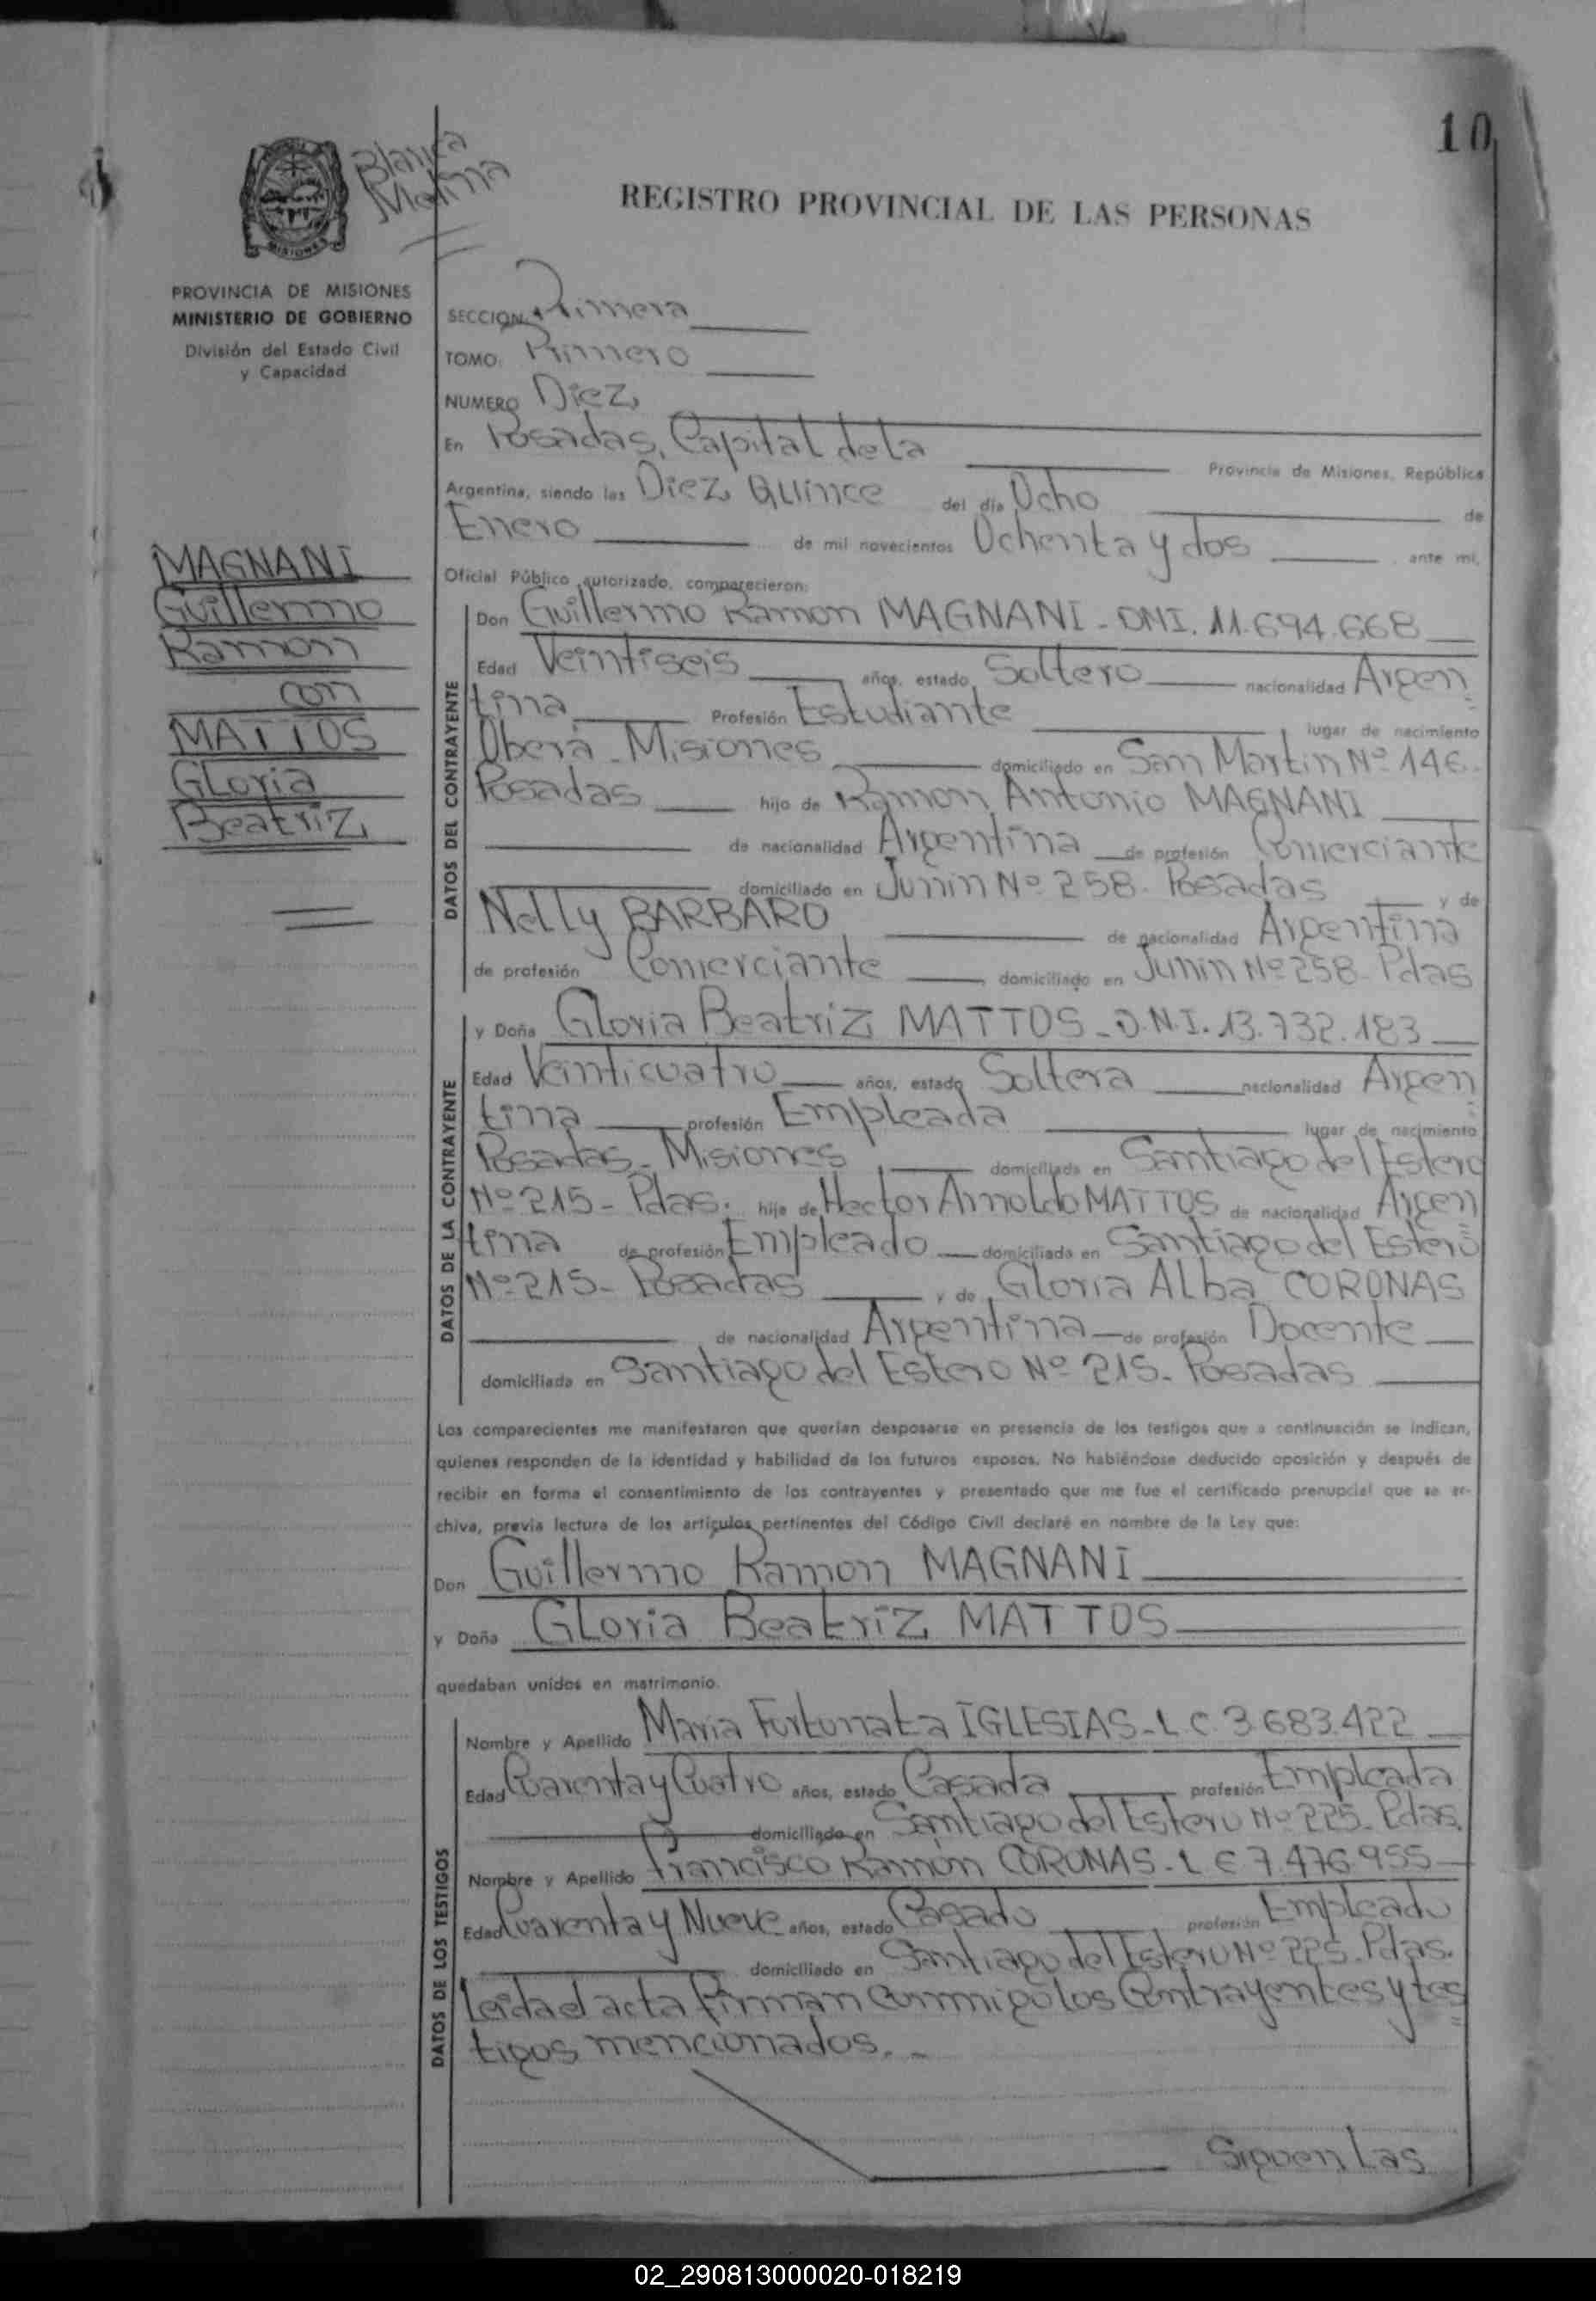 10
Blanca
Molina
REGISTRO PROVINCIAL DE LAS PERSONAS
MISIONES
PROVINCIA DE MISIONES
MINISTERIO DE GOBIERNO
División del Estado Civil
y Capacidad
MAGNANI
Guillermo
Ramon
con
MATTOS
Gloria
Beatriz
SECCION Primera
TOMO: Primero
NUMERO Diez
En Posadas, Capital de La Provincia de Misiones, República
Argentina, siendo las Diez Quince del día Ocho de
Enero de mil novecientos Ochenta y dos ante mí,
Oficial Público autorizado, comparecieron:
DATOS DEL CONTRAYENTE
Don Guillermo Ramon MAGNANI - DNI. 11.694.668
Edad Veintiseis años, estado Soltero nacionalidad Argen
tina Profesión Estudiante lugar de nacimiento
Oberá - Misiones domiciliado en San Martin Nº 146.
Posadas hijo de Ramon Antonio MAGNANI
de nacionalidad Argentina de profesión Comerciante
domiciliado en Junin Nº 258. Posadas y de
Nelly BARBARO de nacionalidad Argentina
de profesión Comerciante domiciliado en Junin Nº 258. Pdas
DATOS DE LA CONTRAYENTE
y Doña Gloria Beatriz MATTOS - D.N.I. 13.732.183
Edad Veinticuatro años, estado Soltera nacionalidad Argen
tina profesión Empleada lugar de nacimiento
Posadas - Misiones domiciliada en Santiago del Estero
Nº 215 - Pdas. hija de Hector Arnoldo MATTOS de nacionalidad Argen
tina de profesión Empleado domiciliado en Santiago del Estero
Nº 215 - Posadas y de Gloria Alba CORONAS
de nacionalidad Argentina de profesión Docente
domiciliada en Santiago del Estero Nº 215. Posadas
Los comparecientes me manifestaron que querían desposarse en presencia de los testigos que a continuación se indican,
quienes responden de la identidad y habilidad de los futuros esposos. No habiéndose deducido oposición y después de
recibir en forma el consentimiento de los contrayentes y presentado que me fue el certificado prenupcial que se ar-
chiva, previa lectura de los artículos pertinentes del Código Civil declaré en nombre de la Ley que:
Don Guillermo Ramon MAGNANI
y Doña Gloria Beatriz MATTOS
quedaban unidos en matrimonio.
DATOS DE LOS TESTIGOS
Nombre y Apellido Maria Fortunata IGLESIAS - L C 3.683.422
Edad Cuarenta y Cuatro años, estado Casada profesión Empleada
domiciliado en Santiago del Estero Nº 225. Pdas.
Nombre y Apellido Francisco Ramon CORONAS - L E 7.476.955
Edad Cuarenta y Nueve años, estado Casado profesión Empleado
domiciliado en Santiago del Estero Nº 225. Pdas.
Leida el acta firman conmigo los Contrayentes y tes
tigos mencionados. -
Siguen Las
02_290813000020-018219